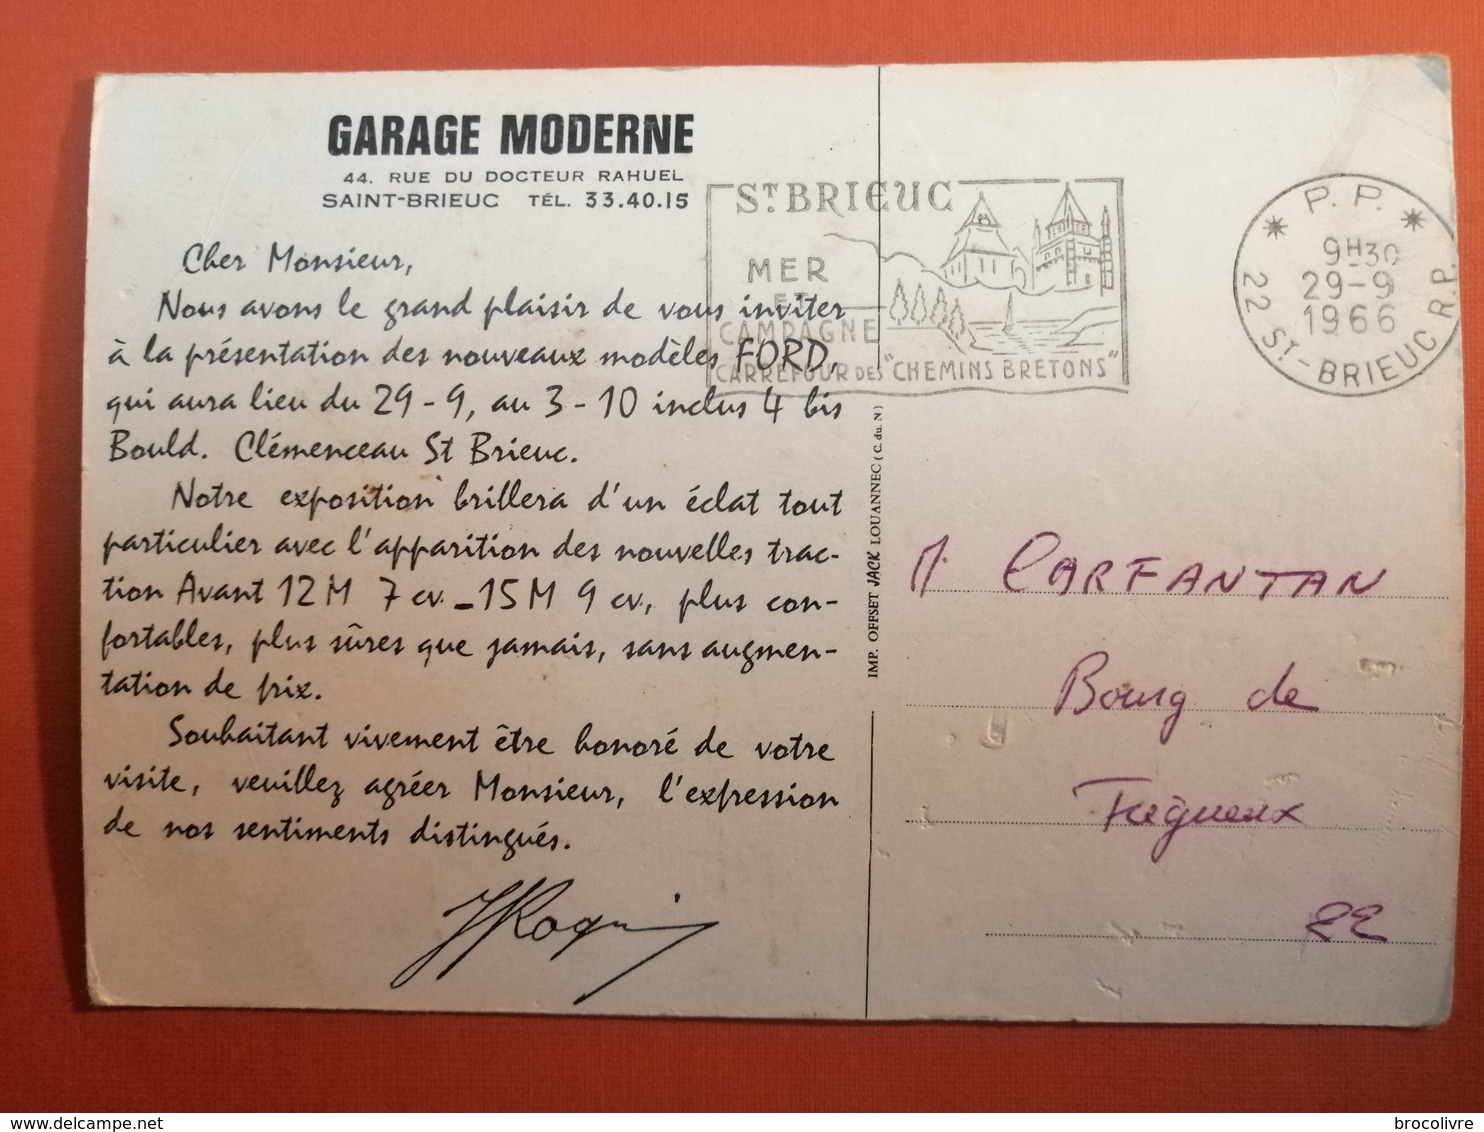 GARAGE MODERNE
44. RUE DU DOCTEUR RAHUEL
SAINT-BRIEUC TÉL. 33.40.15
Cher Monsieur,
Nous avons le grand plaisir de vous inviter
à la présentation des nouveaux modèles FORD,
qui aura lieu du 29-9, au 3-10 inclus 4 bis
Bould. Clémenceau St Brieuc.
Notre exposition brillera d'un éclat tout
particulier avec l'apparition des nouvelles trac-
tion Avant 12M 7 cv - 15M 9 cv, plus con-
fortables, plus sûres que jamais, sans augmen-
tation de prix.
Souhaitant vivement être honoré de votre
visite, veuillez agréer Monsieur, l'expression
de nos sentiments distingués.
ST BRIEUC
MER
ET
CAMPAGNE
CARREFOUR DES "CHEMINS BRETONS"
* P.P. *
9H30
29-9
1966
22 ST-BRIEUC R.P.
IMP. OFFSET JACK LOUANNEC (C. du. N)
M. CARFANTAN
Bourg de
Trégueux
22
delcampe.net
brocolivre